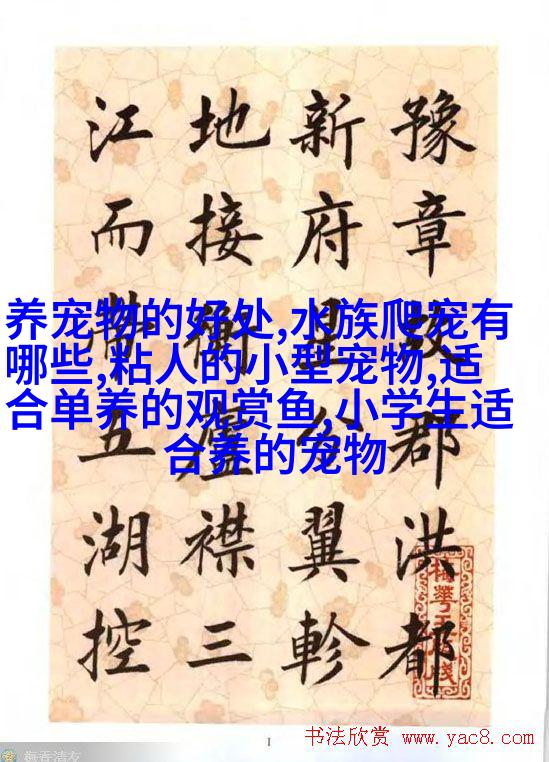 豫章故郡洪都
新府星分翼軫
地接衡廬襟三
江而帶五湖控
养宠物的好处,水族爬宠有
哪些,粘人的小型宠物,适
合单养的观赏鱼,小学生适
合养的宠物
1
书法欣赏 www.yac8.com
梅香清友